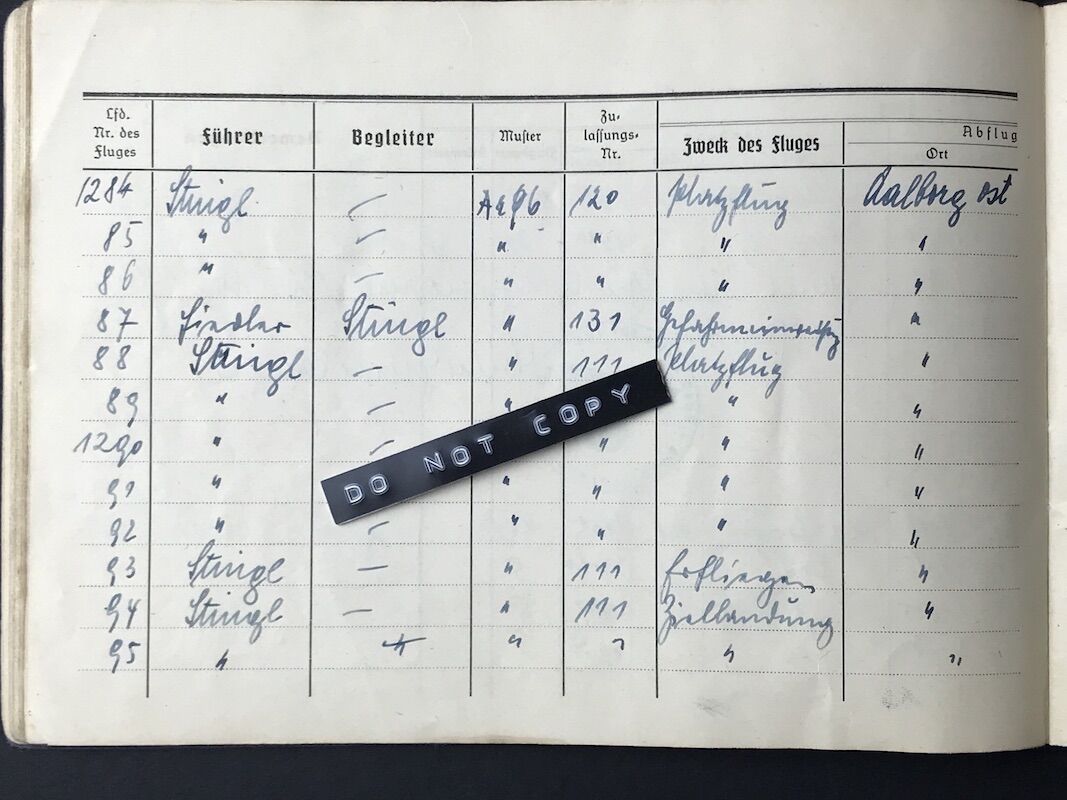 Lfd. Nr. des Fluges Führer Begleiter Muster Zulassungs-Nr. Zweck des Fluges Abflug Ort
1284 Stingl — Ar96 120 Platzflug Aalborg ost
85 " — " " " "
86 " — " " " "
87 Fiedler Stingl " 131 "
88 Stingl — " 111 Platzflug "
89 " — " " "
1290 " — " " "
91 " " " " "
92 " — " " " "
93 Stingl — " 111 Erfliegen "
94 Stingl — " 111 Ziellandung "
95 " " " " " "
DO NOT COPY